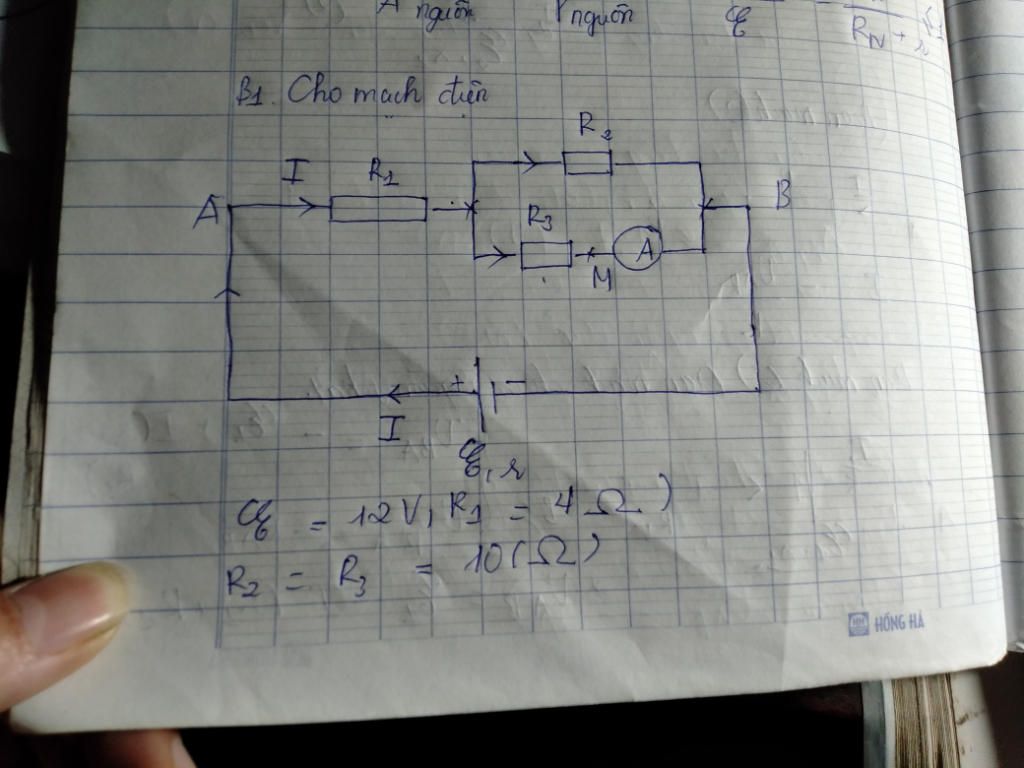 A nguồn P nguồn ℰ R_N + r
B1. Cho mạch điện
R2
I R1
A B
R3
A
M
+ -
I
ℰ, r
ℰ = 12V, R1 = 4 Ω)
R2 = R3 = 10 (Ω)
HH HỒNG HÀ